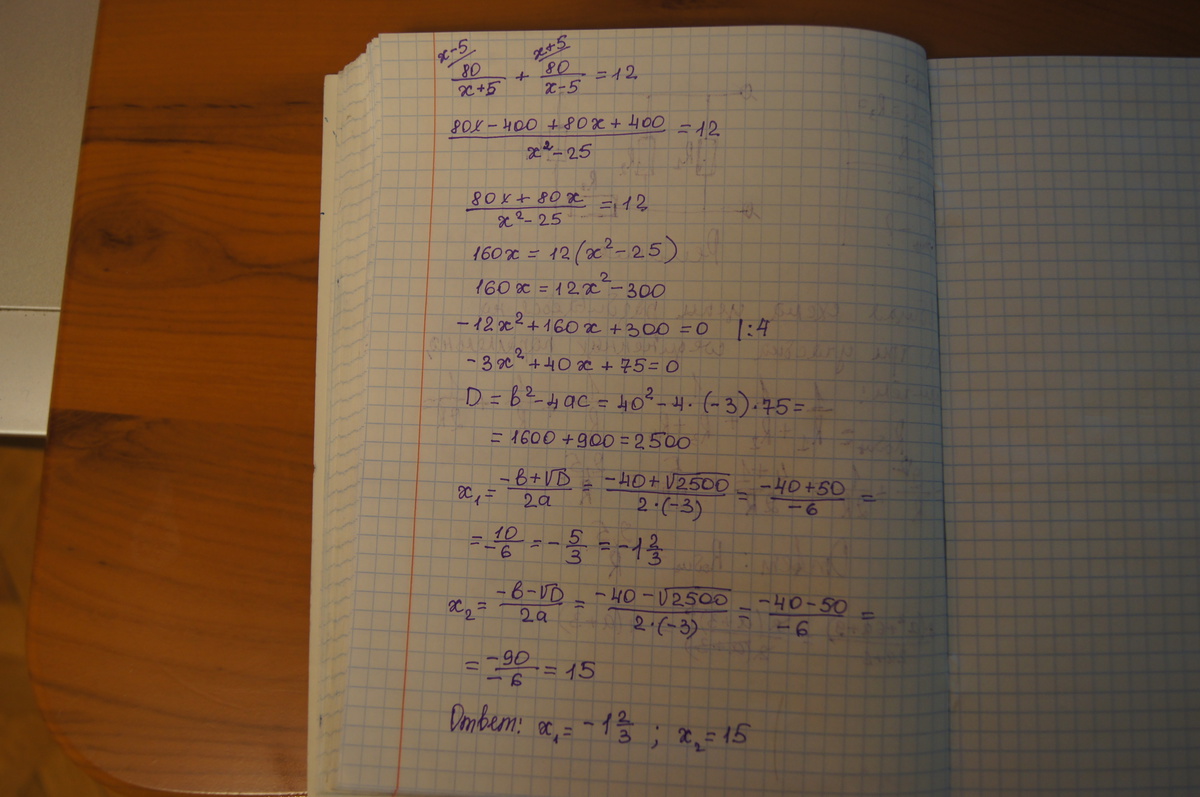 x-5/ x+5/
80/(x+5) + 80/(x-5) = 12
(80x - 400 + 80x + 400)/(x² - 25) = 12
(80x + 80x)/(x² - 25) = 12
160x = 12(x² - 25)
160x = 12x² - 300
-12x² + 160x + 300 = 0 |:4
-3x² + 40x + 75 = 0
D = в² - 4ac = 40² - 4·(-3)·75 =
= 1600 + 900 = 2500
x₁ = (-в + √D)/2a = (-40 + √2500)/(2·(-3)) = (-40 + 50)/-6 =
= 10/-6 = -5/3 = -1 2/3
x₂ = (-в - √D)/2a = (-40 - √2500)/(2·(-3)) = (-40 - 50)/-6 =
= -90/-6 = 15
Ответ: x₁ = -1 2/3 ; x₂ = 15